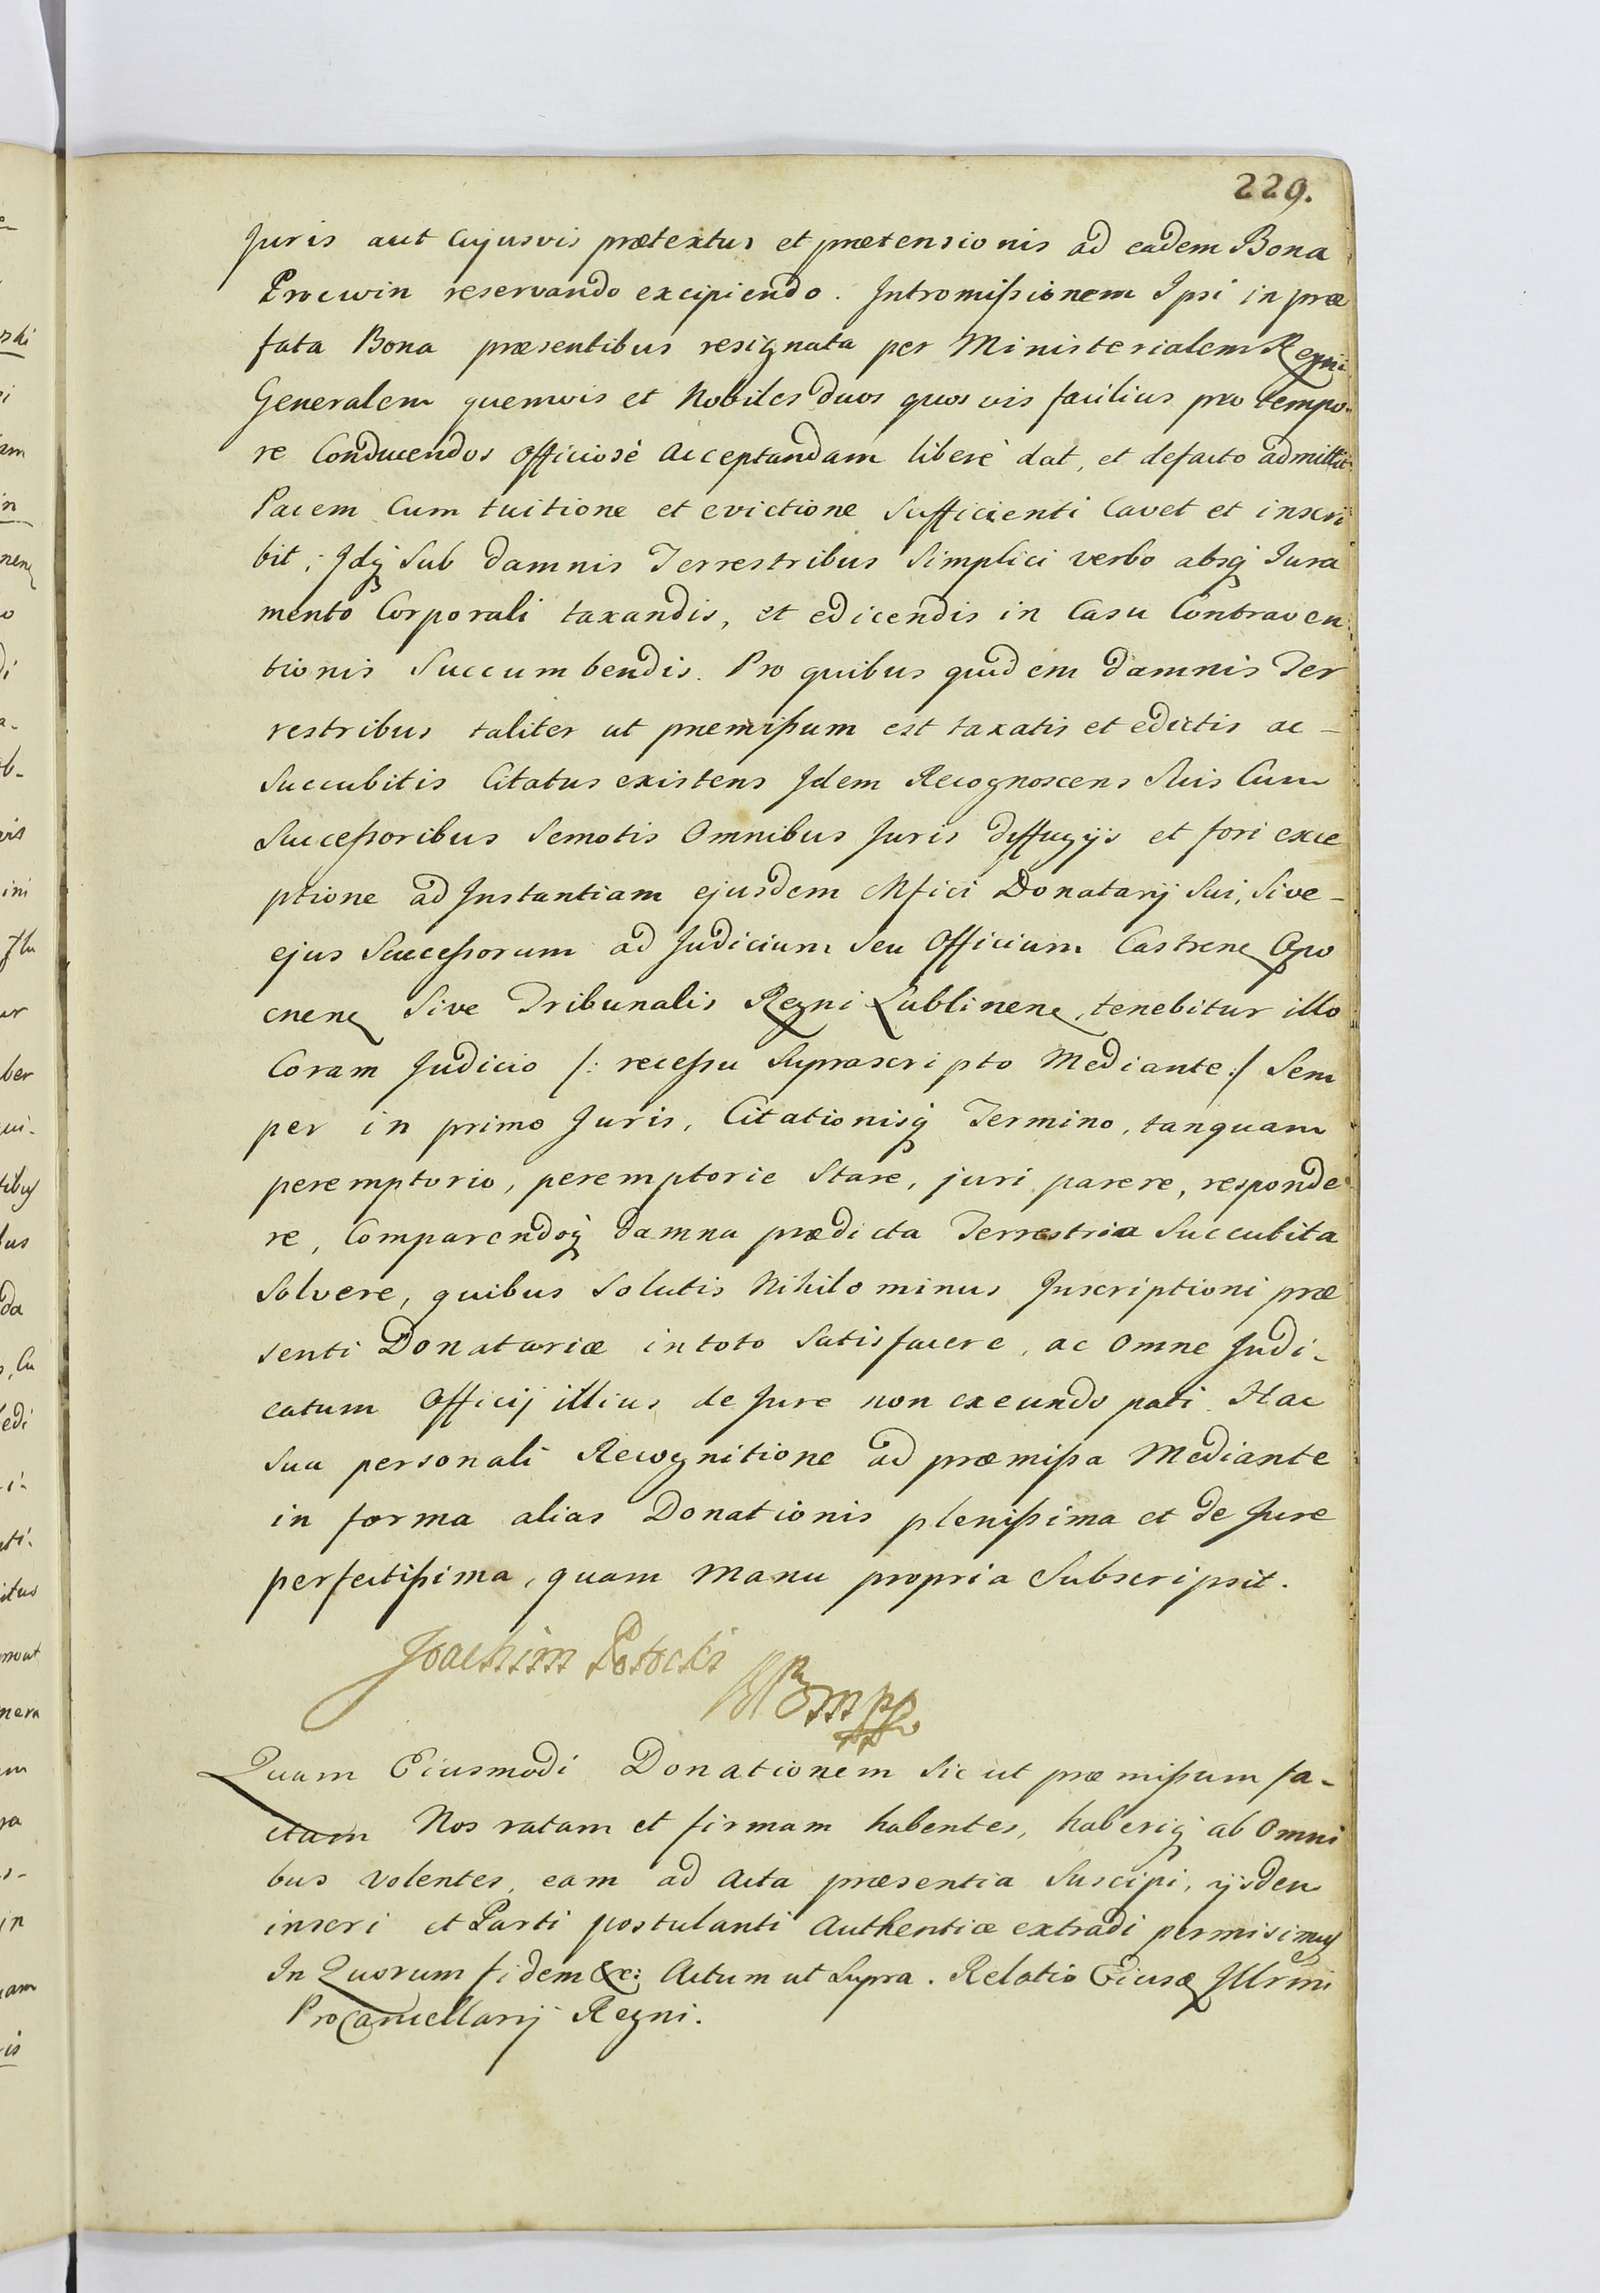 229.
Juris aut Cujusvis prætextus et prætensionis ad eadem Bona
Procwin reservando excipiendo. Intromißionem Ipsi in præ
fata Bona præsentibus resignata per Ministerialem Regni
Generalem quemvis et Nobiles duos quos vis facilius pro tempo-
re Conducendos Officiosè Acceptandam liberè dat, et defacto admittit
Pacem Cum tuitione et evictione Sufficienti Cavet et inscri
bit; Idq́ Sub damnis Terrestribus Simplici verbo absq́ Jura
mento Corporali taxandis, et edicendis in Casu Contraven
tionis Succumbendis. Pro quibus quidem damnis Ter
restribus taliter ut præmißum est taxatis et edictis ac -
Succubitis Citatus existens Idem Recognoscens Suis Cum
Succeßoribus Semotis Omnibus Juris diffugijs et fori exce
ptione ad Instantiam ejusdem Mfici Donatarij Sui, Sive -
ejus Succeßorum ad Judicium Seu Officium Castrenę Opo
cnenę Sive Tribunalis Regni Lublinenę, tenebitur illo
Coram Judicio /: receßu Suprascripto Mediante :/ Sem
per in primo Juris, Citationisq́ Termino, tanquam
peremptorio, peremptorie Stare, juri parere, responde
re, Comparendoq́ damna prædicta Terrestria Succubita
Solvere, quibus Solutis Nihilominus Inscriptioni præ
senti Donatariæ in toto Satisfacere, ac Omne Judi-
catum Officij illius de Jure non exeundo pati. Hac
Sua personali Recognitione ad præmißa Mediante
in forma alias Donationis plenißima et de Jure
perfectißima, quam Manu propria Subscripsit.
Joachim Potocki
Quam Eiusmodi Donationem Sic ut præmißum fa-
ctam Nos ratam et firmam habentes, haberiq́ ab Omni
bus Volentes, eam ad Acta præsentia Suscipi, ijsdem
inseri et Parti postulanti Authenticæ extradi permisimus
In Quorum fidem &c: Actum ut Supra. Relatio Eiusdę Illrmi
ProCancellarij Regni.